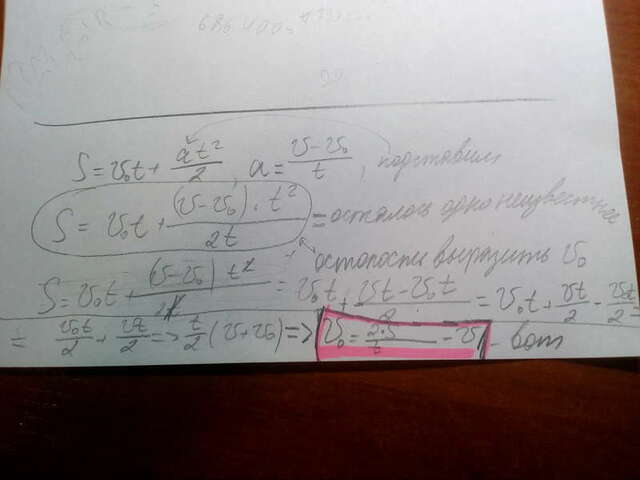 S = v₀t + at²/2, a = (v - v₀)/t, подставим
S = v₀t + (v - v₀) · t²/2t = осталось одно неизвестное
осталось выразить v₀
S = v₀t + (v - v₀) t²/2t = v₀t + (vt - v₀t)/2 = v₀t + vt/2 - v₀t/2 =
= v₀t/2 + vt/2 => t/2 (v + v₀) => v₀ = 2·S/t - v - вот